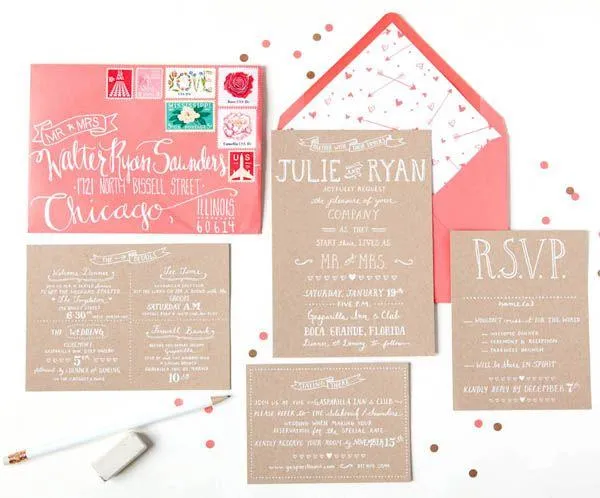 MR & MRS.
Walter Ryan Saunders
1721 NORTH BISSELL STREET
Chicago,
ILLINOIS
60614
LOVE
MISSISSIPPI
US
TOGETHER WITH THEIR FAMILIES
JULIE AND RYAN
JOYFULLY REQUEST
the pleasure of your
COMPANY
AS THEY
START their LIVES AS
MR. & MRS.
SATURDAY, JANUARY 19th
Gasparilla Inn & Club
BOCA GRANDE, FLORIDA
Dinner & Dancing to follow
THE DETAILS
Welcome Dinner
The Templeton
6:30
THE WEDDING
CEREMONY
5
followed by DINNER & DANCING
Tee Time
GROOM
SATURDAY A.M.
Farewell Brunch
Gasparilla
10
R.S.V.P.
name(s)
WOULDN'T miss it FOR THE WORLD
WELCOME DINNER
CEREMONY & RECEPTION
FAREWELL BRUNCH
will be there IN SPIRIT
KINDLY REPLY BY DECEMBER 7th
STAYING THERE
JOIN US AT THE GASPARILLA INN & CLUB
PLEASE REFER TO THE
WEDDING WHEN MAKING YOUR
RESERVATION FOR THE SPECIAL RATE
KINDLY RESERVE YOUR ROOM BY NOVEMBER 15th